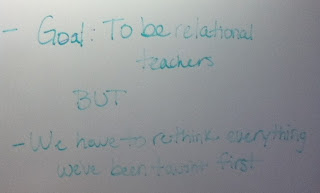 - Goal: To be relational
teachers
BUT
- We have to rethink everything
we've been taught first